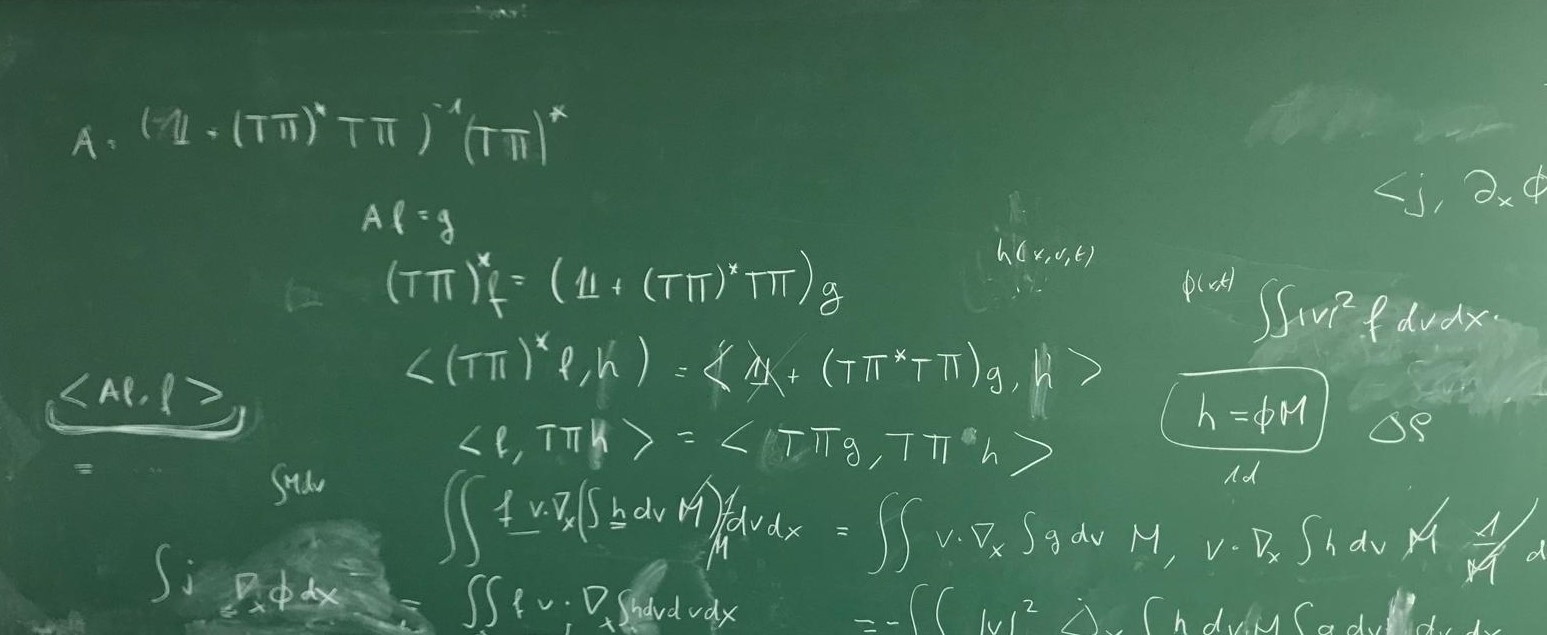 A = (𝟙 + (TΠ)* TΠ)⁻¹ (TΠ)*
Af = g
(TΠ)*f = (𝟙 + (TΠ)*TΠ)g
<(TΠ)*f, h) = <𝟙 + (TΠ*TΠ)g, h>
<f, TΠh> = <TΠg, TΠh>
∬ f v·∇ₓ(∫h dv M) 1/M dv dx = ∬ v·∇ₓ ∫g dv M, v·∇ₓ ∫h dv M 1/M d
∬ f v·∇ₓ ∫h dv dv dx = -∬ |v|² Δₓ ∫h dv M ∫g dv dv dx
<Af, f>
=
∫M dv
∫j ∇ₓϕ dx =
h(x,v,t)
<j, ∂ₓϕ
ϕ(x,t)
∬|v|² f dv dx
h = ϕM
Δρ
1d